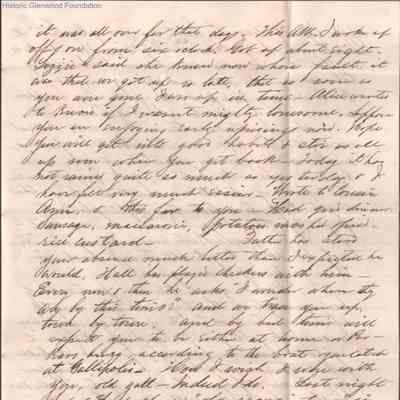 Historic Glenwood Foundation
it was all over for that day. This AM. I woke up
off & on from six o'clock. Got up about eight.
Lizzie said she knew now whose fault it
was that we got up so late, that as soon as
you were gone I was up in time. Alice wanted
to know if I wasn't mighty lonesome. Suppose
you are enjoying early uprisings now. Hope
you will get into good habits & stir us all
up soon when you get back — Today it has
not rained quite so much as yesterday & I
have felt very much easier — Wrote to Cousin
Ann, & this far to you — Had good dinner
Sausage, macaroni, potatoes mashed fried
rice custard — Father has stood
your absence much better than I expected he
would. Hall has played checkers with him —
Every now & then he asks "I wonder where they
by this time" and we trace you up,
town by town, and by bed time will
expect you to be either at home or
according to the boat
at Gallipolis — How I wish I was with
you, old gall — Indeed I do. Last night